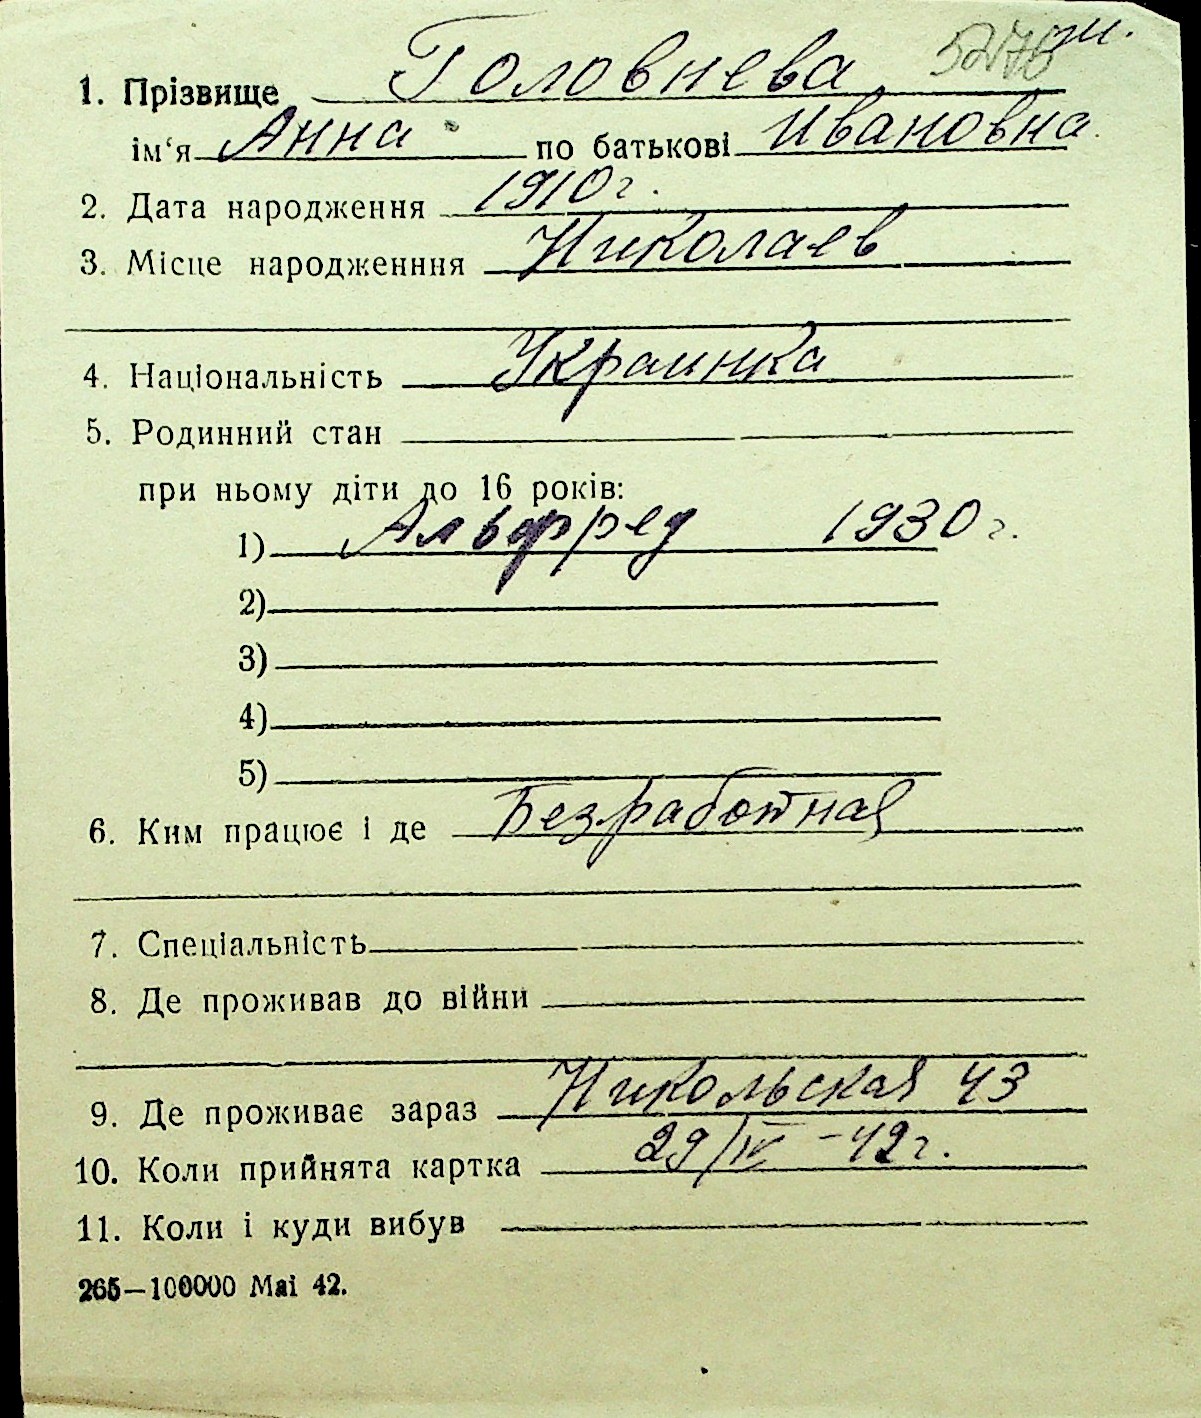 5276 ж.
1. Прізвище Головнева
ім‘я Анна по батькові Ивановна
2. Дата народження 1910 г.
3. Місце народженння Николаев
4. Національність Украинка
5. Родинний стан
при ньому діти до 16 років:
1) Альфред 1930 г.
2)
3)
4)
5)
6. Ким працює і де Безработная
7. Спеціальність
8. Де проживав до війни
9. Де проживає зараз Никольская 43
10. Коли прийнята картка 29/IV – 42 г.
11. Коли і куди вибув
265—100000 Маі 42.